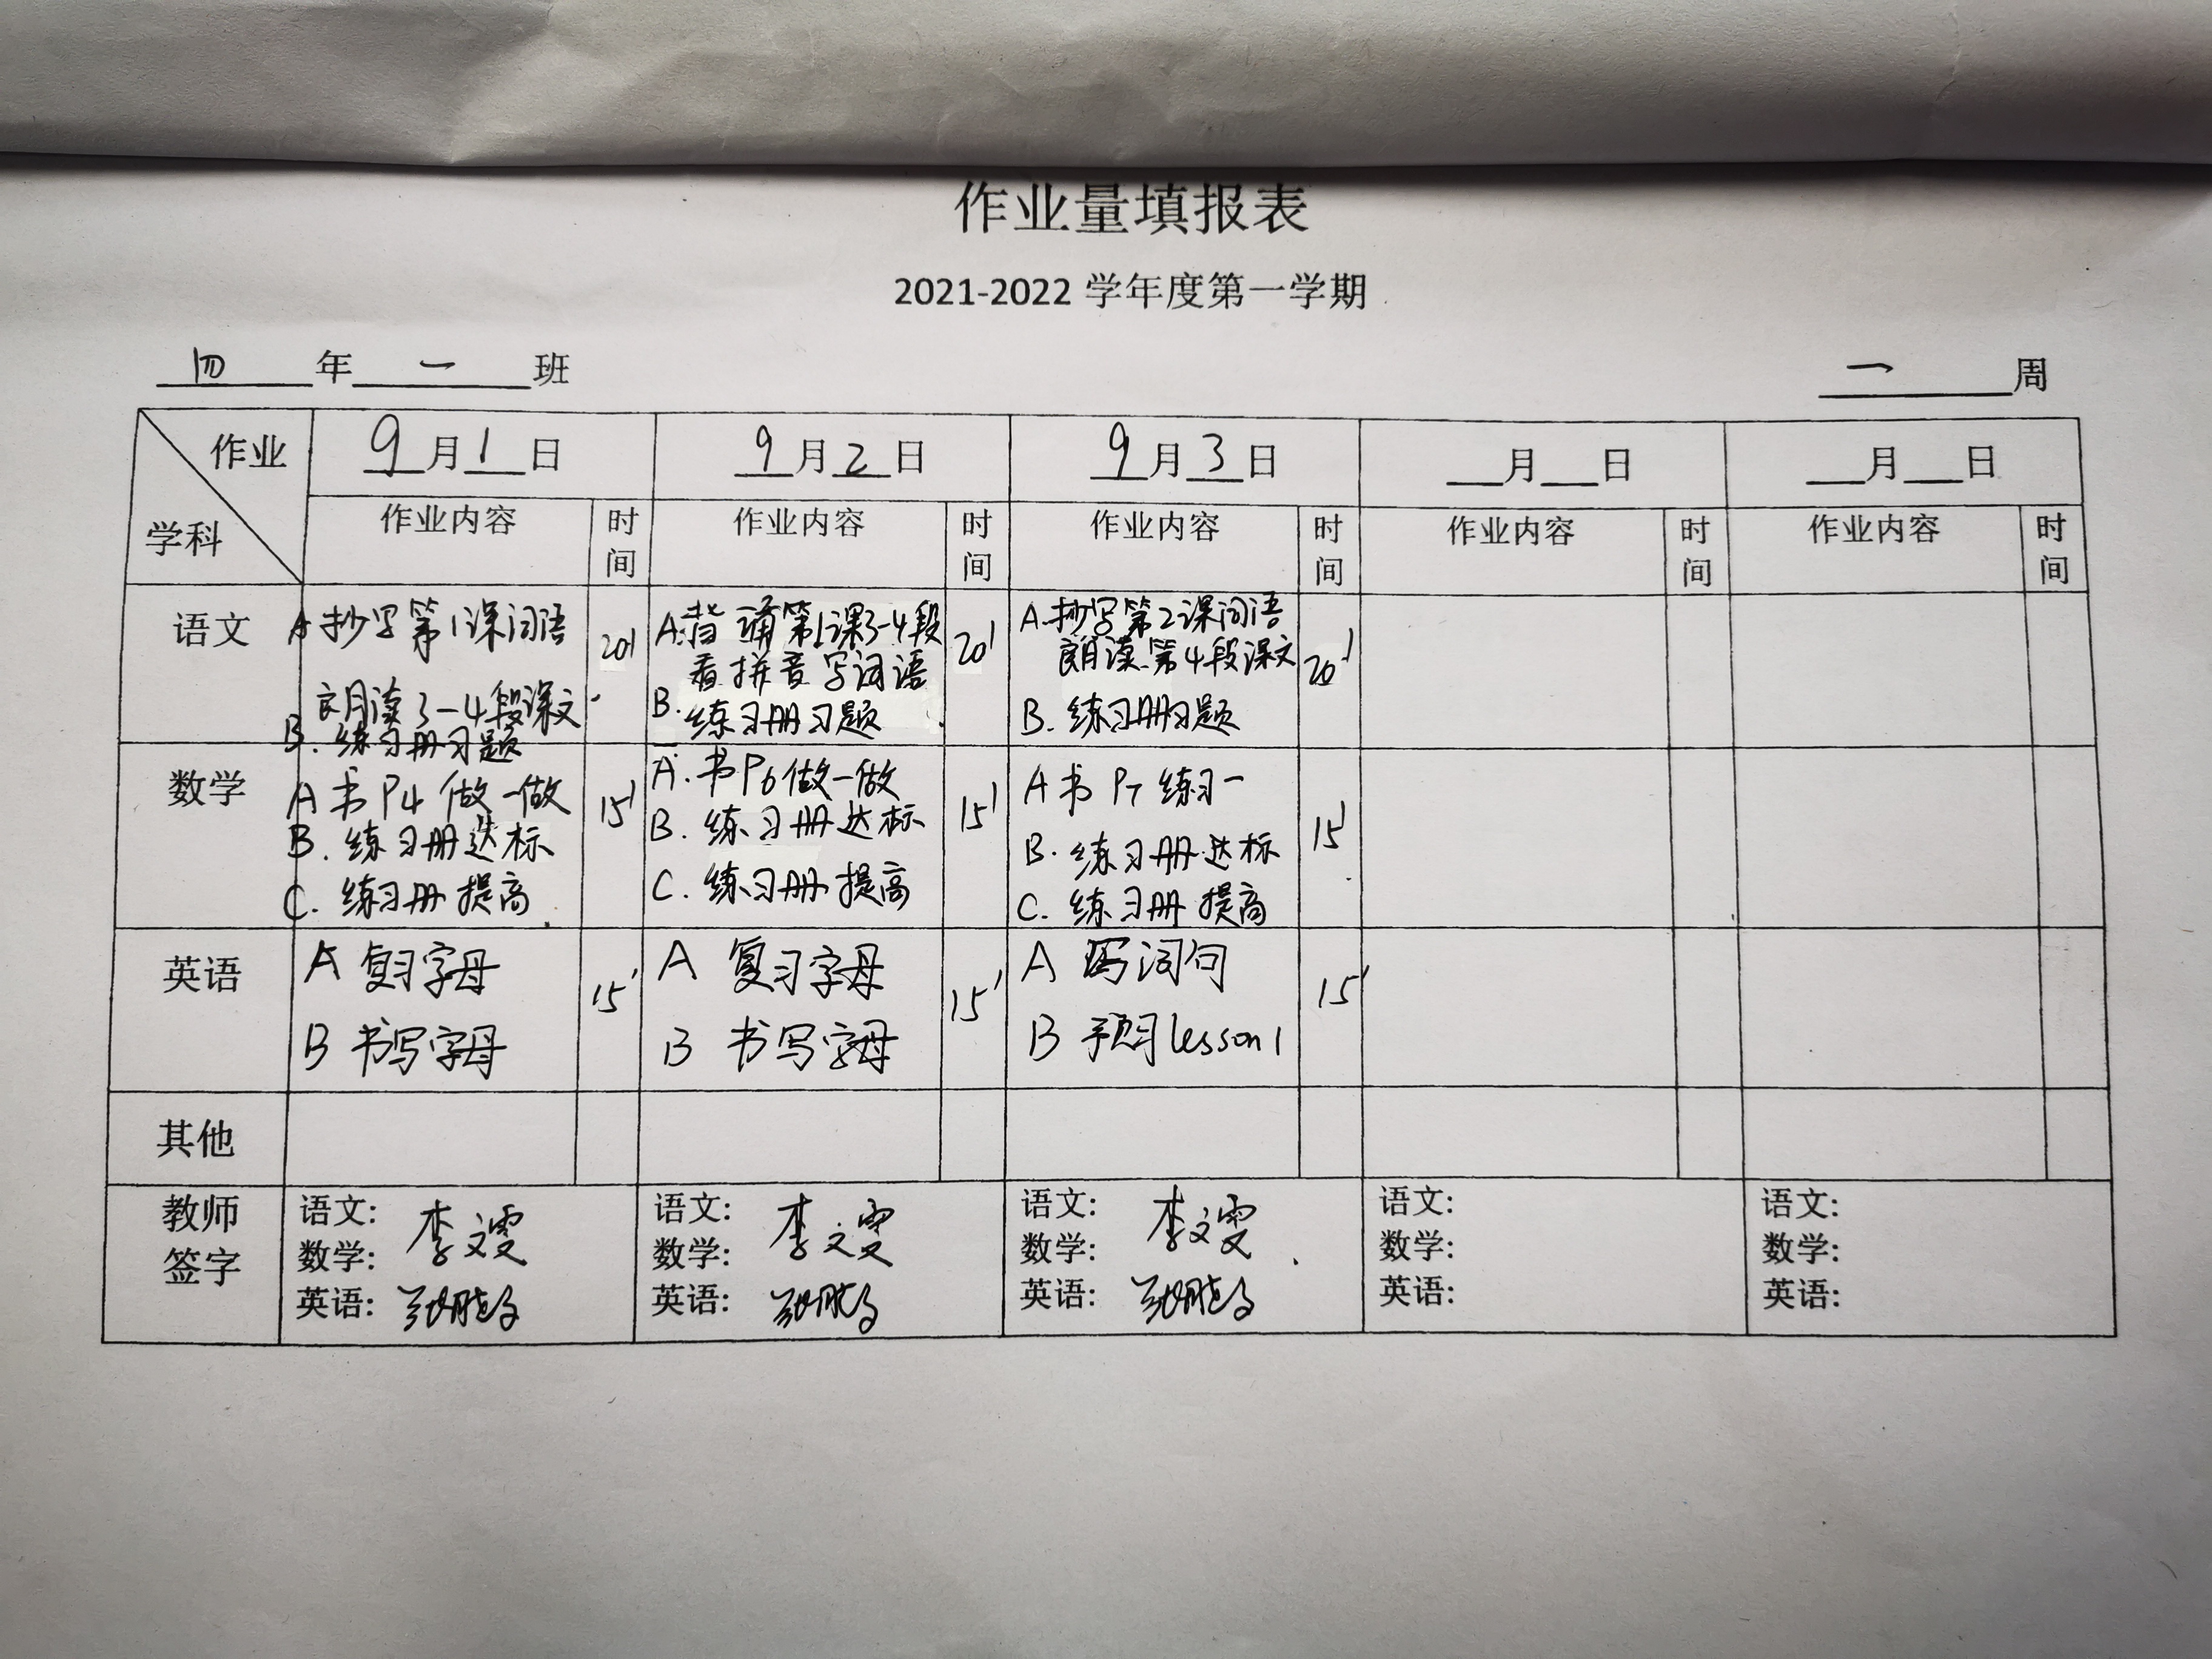 作业量填报表
2021-2022 学年度第一学期
四 年 一 班
一 周
作业
学科
9月1日
9月2日
9月3日
月 日
月 日
作业内容 时间
作业内容 时间
作业内容 时间
作业内容 时间
作业内容 时间
语文
A 抄写第1课词语
朗读3-4段课文
B. 练习册习题
20'
A. 背诵第1课3-4段
看拼音写词语
B. 练习册习题
20'
A. 抄写第2课词语
朗读第4段课文
B. 练习册习题
20'
数学
A 书P4 做一做
B. 练习册达标
C. 练习册提高
15'
A. 书P6做一做
B. 练习册达标
C. 练习册提高
15'
A 书 P7 练习一
B. 练习册达标
C. 练习册提高
15'
英语
A 复习字母
B 书写字母
15'
A 复习字母
B 书写字母
15'
A 写词句
B 预习lesson1
15'
其他
教师
签字
语文:
数学: 李文雯
英语:
语文:
数学: 李文雯
英语:
语文:
数学: 李文雯
英语:
语文:
数学:
英语:
语文:
数学:
英语: